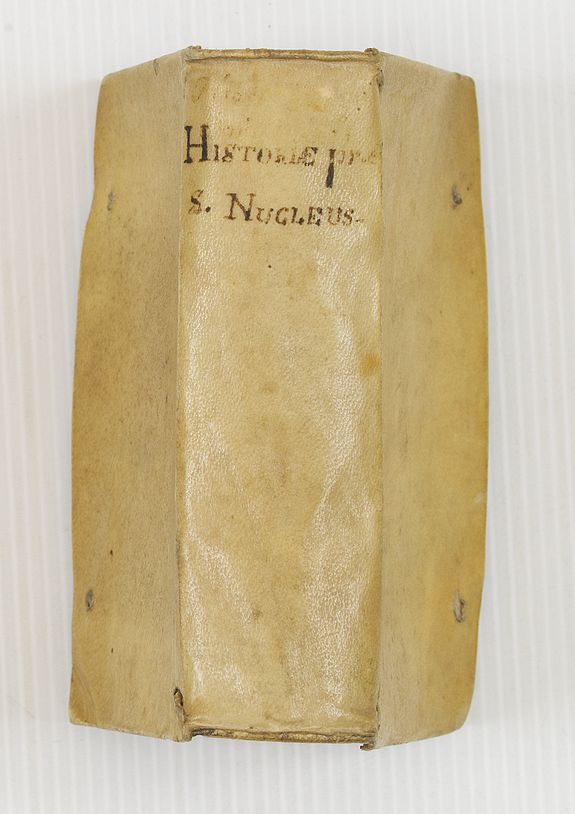 HISTORIÆ præ
S. NUCLEUS.